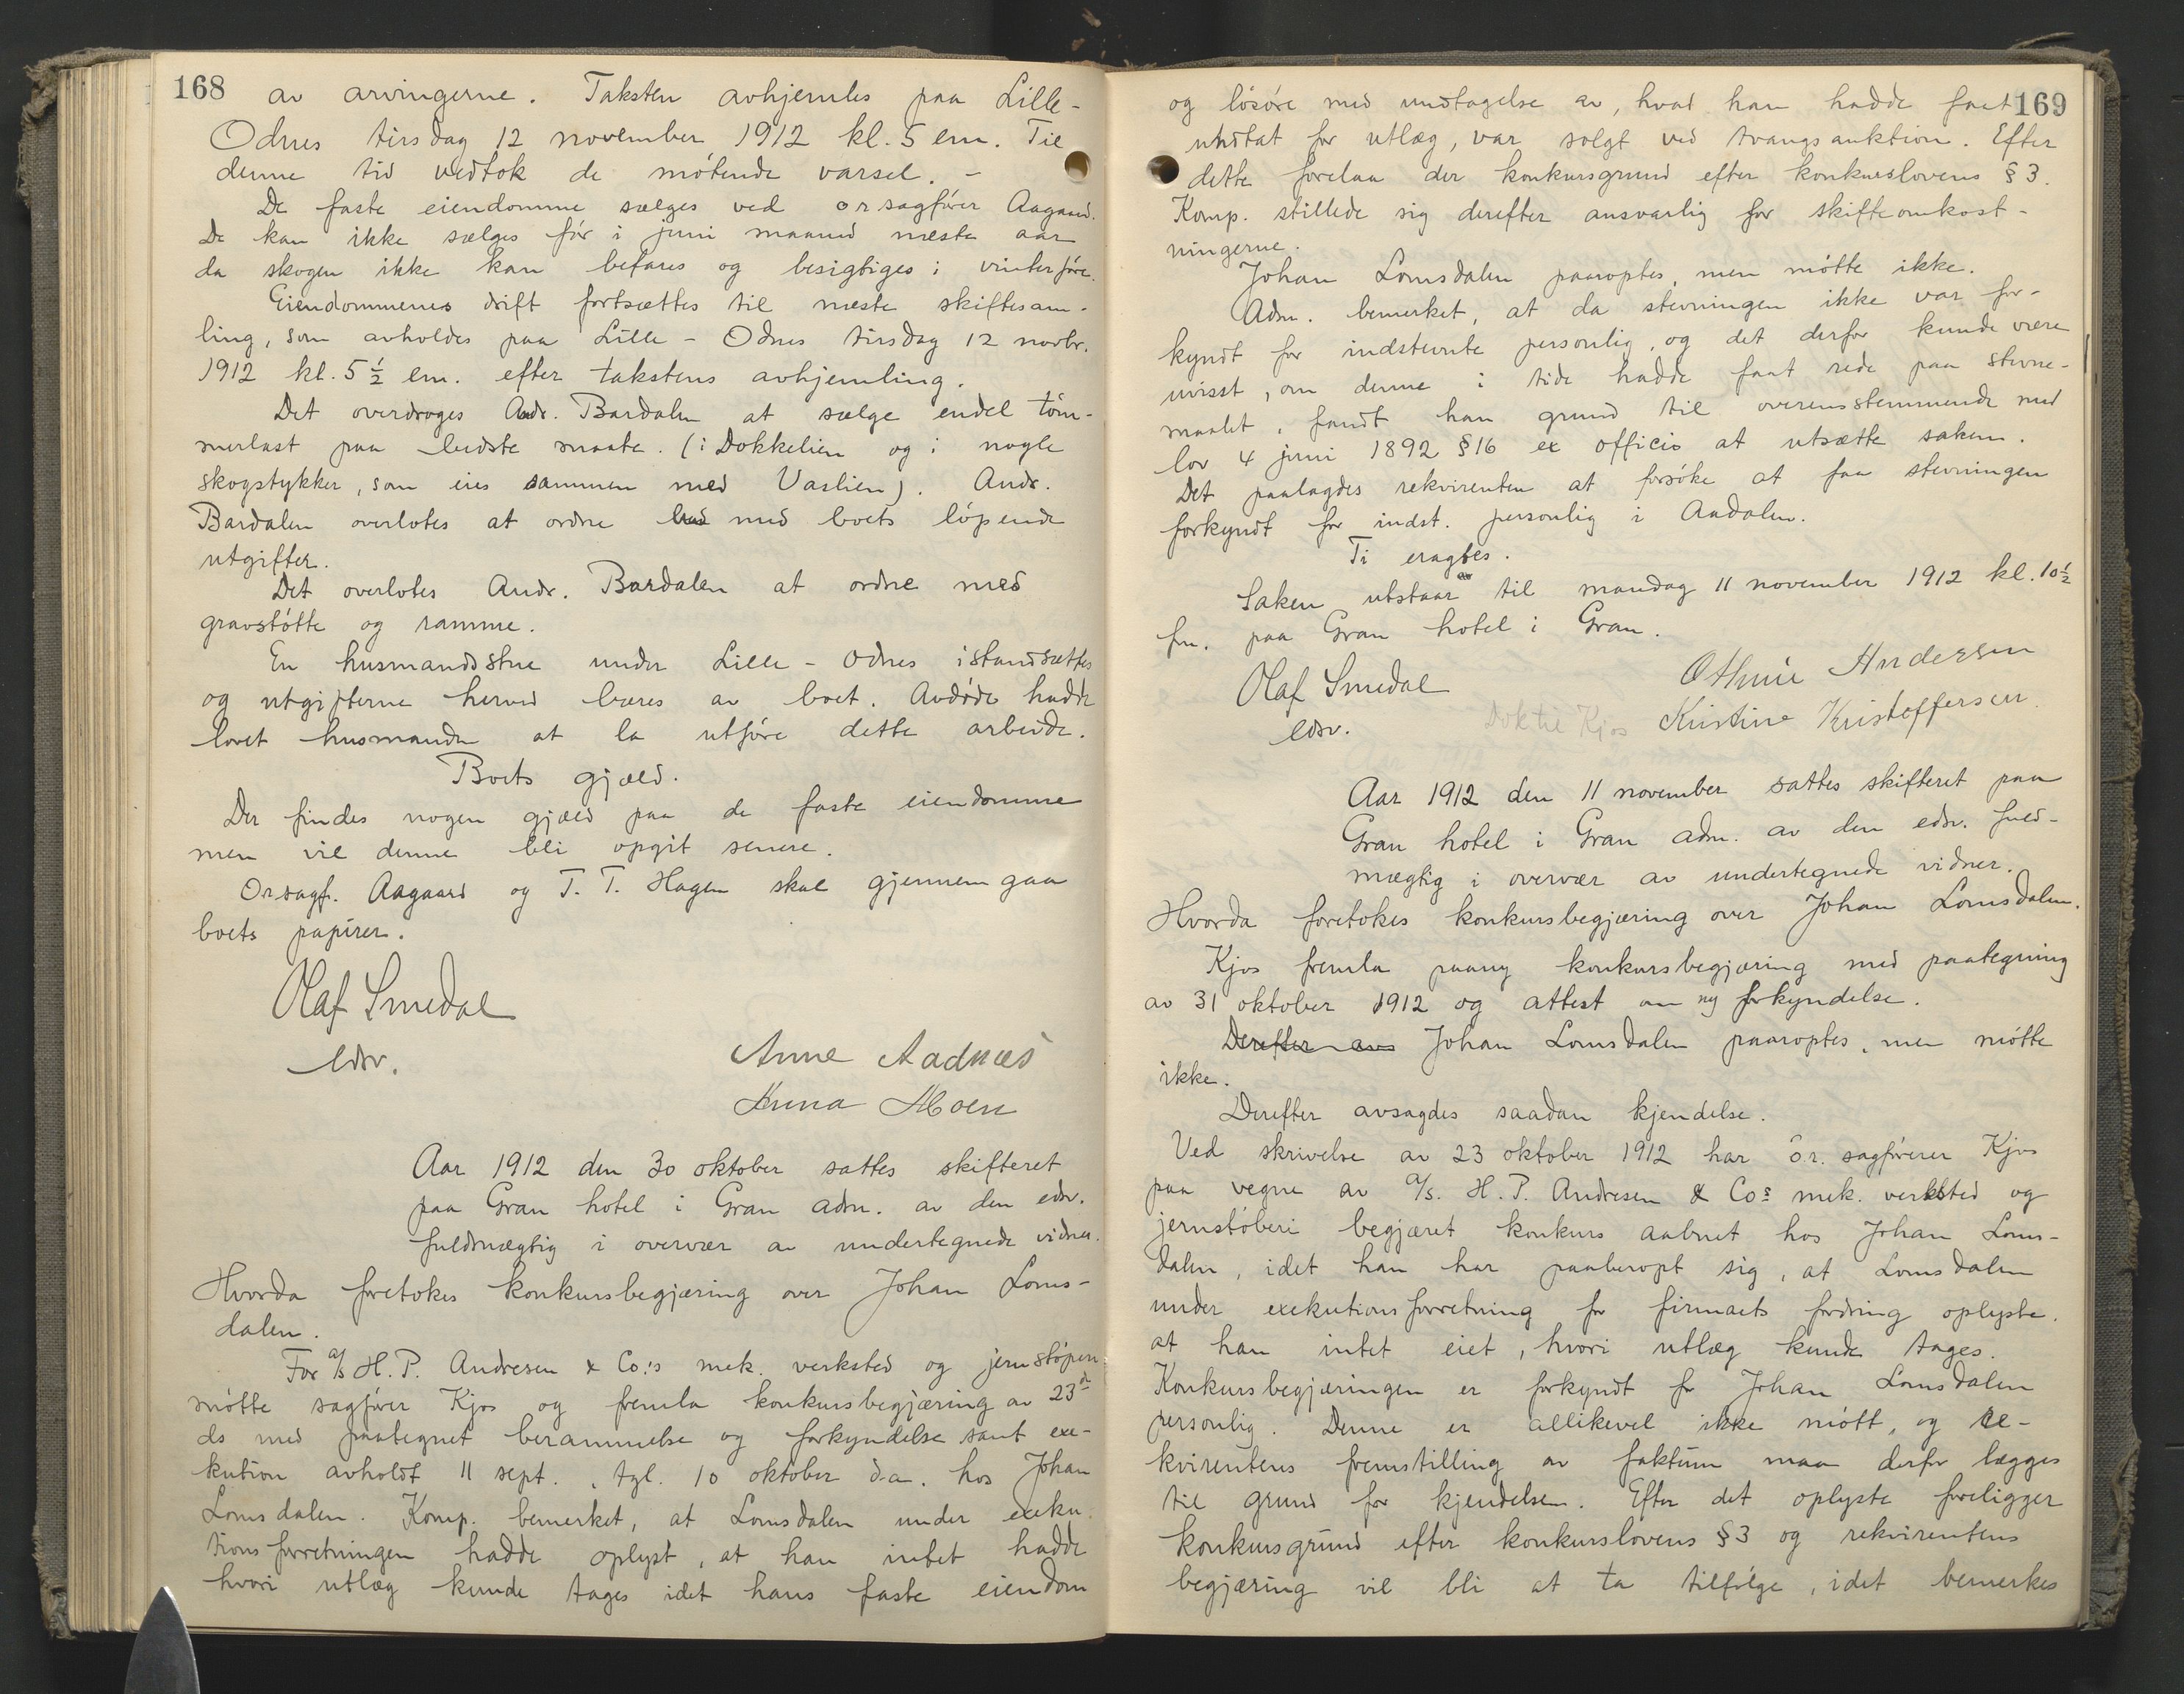 168
av arvingerne. Taksten avhjemles paa Lille-
Odnes tirsdag 12 november 1912 kl. 5 em. Til
denne tid vedtok de møtende varsel. -
De faste eiendomme sælges ved o r sagfører Aagaard.
De kan ikke sælges før i juni maaned næste aar
da skogen ikke kan befares og besigtiges i vinterføre.
Eiendommenes drift fortsættes til næste skiftesam-
ling, som avholdes paa Lille-Odnes tirsdag 12 novbr.
1912 kl. 5 1/2 em. efter takstens avhjemling.
Det overdroges Andr. Bardalen at sælge endel tøm-
merlast paa bedste maate. (i Dokkelien og i nogle
skogstykker, som eies sammen med Vaslien). Andr.
Bardalen overlotes at ordne med boets løpende
utgifter.
Det overlotes Andr. Bardalen at ordne med
gravstøtte og ramme.
En husmandsstue under Lille-Odnes istandsættes
og utgifterne herved bæres av boet. Avdøde hadde
lovet husmanden at la utføre dette arbeide.
Boets gjæld.
Der findes nogen gjæld paa de faste eiendomme
men vil denne bli opgit senere.
Orsagf. Aagaard og T. T. Hagen skal gjennemgaa
boets papirer.
Olaf Smedal
edsv.
Anne Aadnæs
Anna Moen
Aar 1912 den 30 oktober sattes skifteret
paa Gran hotel i Gran adm. av den edsv.
fuldmægtig i overvær av undertegnede vidner.
Hvorda foretokes konkursbegjæring over Johan Loms-
dalen.
For a/s H. P. Andresen & Co.'s mek. verksted og jernstøperi
møtte sagfører Kjos og fremla konkursbegjæring av 23de
ds med paategnet berammelse og forkyndelse samt exe-
kution avholdt 11 sept., tgl. 10 oktober d.a. hos Johan
Lomsdalen. Komp. bemerket, at Lomsdalen under exeku
tionsforretningen hadde oplyst, at han intet hadde
hvori utlæg kunde tages idet hans faste eiendom
169
og løsøre med undtagelse av, hvad han hadde faat
undtat for utlæg, var solgt ved tvangsauktion. Efter
dette forelaa der konkursgrund efter konkurslovens § 3.
Komp. stillede sig derefter ansvarlig for skifteomkost-
ningerne.
Johan Lomsdalen paaroptes, men møtte ikke.
Adm. bemerket, at da stevningen ikke var for-
kyndt for indstevnte personlig, og det derfor kunde være
uvisst, om denne i tide hadde faat rede paa stevne-
maalet, fandt han grund til overensstemmende med
lov 4 juni 1892 § 16 ex officio at utsætte saken.
Det paalagdes rekvirenten at forsøke at faa stevningen
forkyndt for indst. personlig i Aadalen.
Ti eragtes.
Saken utstaar til mandag 11 november 1912 kl. 10 1/2
fm. paa Gran hotel i Gran.
Olaf Smedal
edsv.
Othine Andersen
Kristine Kristoffersen
Aar 1912 den 11 november sattes skifteret paa
Gran hotel i Gran adm. av den edsv. fuld-
mægtig i overvær av undertegnede vidner.
Hvorda foretokes konkursbegjæring over Johan Lomsdalen.
Kjos fremla paany konkursbegjæring med paategning
av 31 oktober 1912 og attest om ny forkyndelse.
Derefter avs Johan Lomsdalen paaroptes, men møtte
ikke.
Derefter avsagdes saadan kjendelse.
Ved skrivelse av 23 oktober 1912 har o.r. sagfører Kjos
paa vegne av a/s. H. P. Andresen & Cos mek. verksted og
jernstøberi begjæret konkurs aabnet hos Johan Loms-
dalen, idet han har paaberopt sig, at Lomsdalen
under exekutionsforretning for firmaets fordring oplyste.
at han intet eiet, hvori utlæg kunde tages.
Konkursbegjæringen er forkyndt for Johan Lomsdalen
personlig. Denne er allikevel ikke møtt, og re-
kvirentens fremstilling av faktum maa derfor lægges
til grund for kjendelsen. Efter det oplyste foreligger
konkursgrund efter konkurslovens § 3 og rekvirentens
begjæring vil bli at ta tilfølge, idet bemerkes